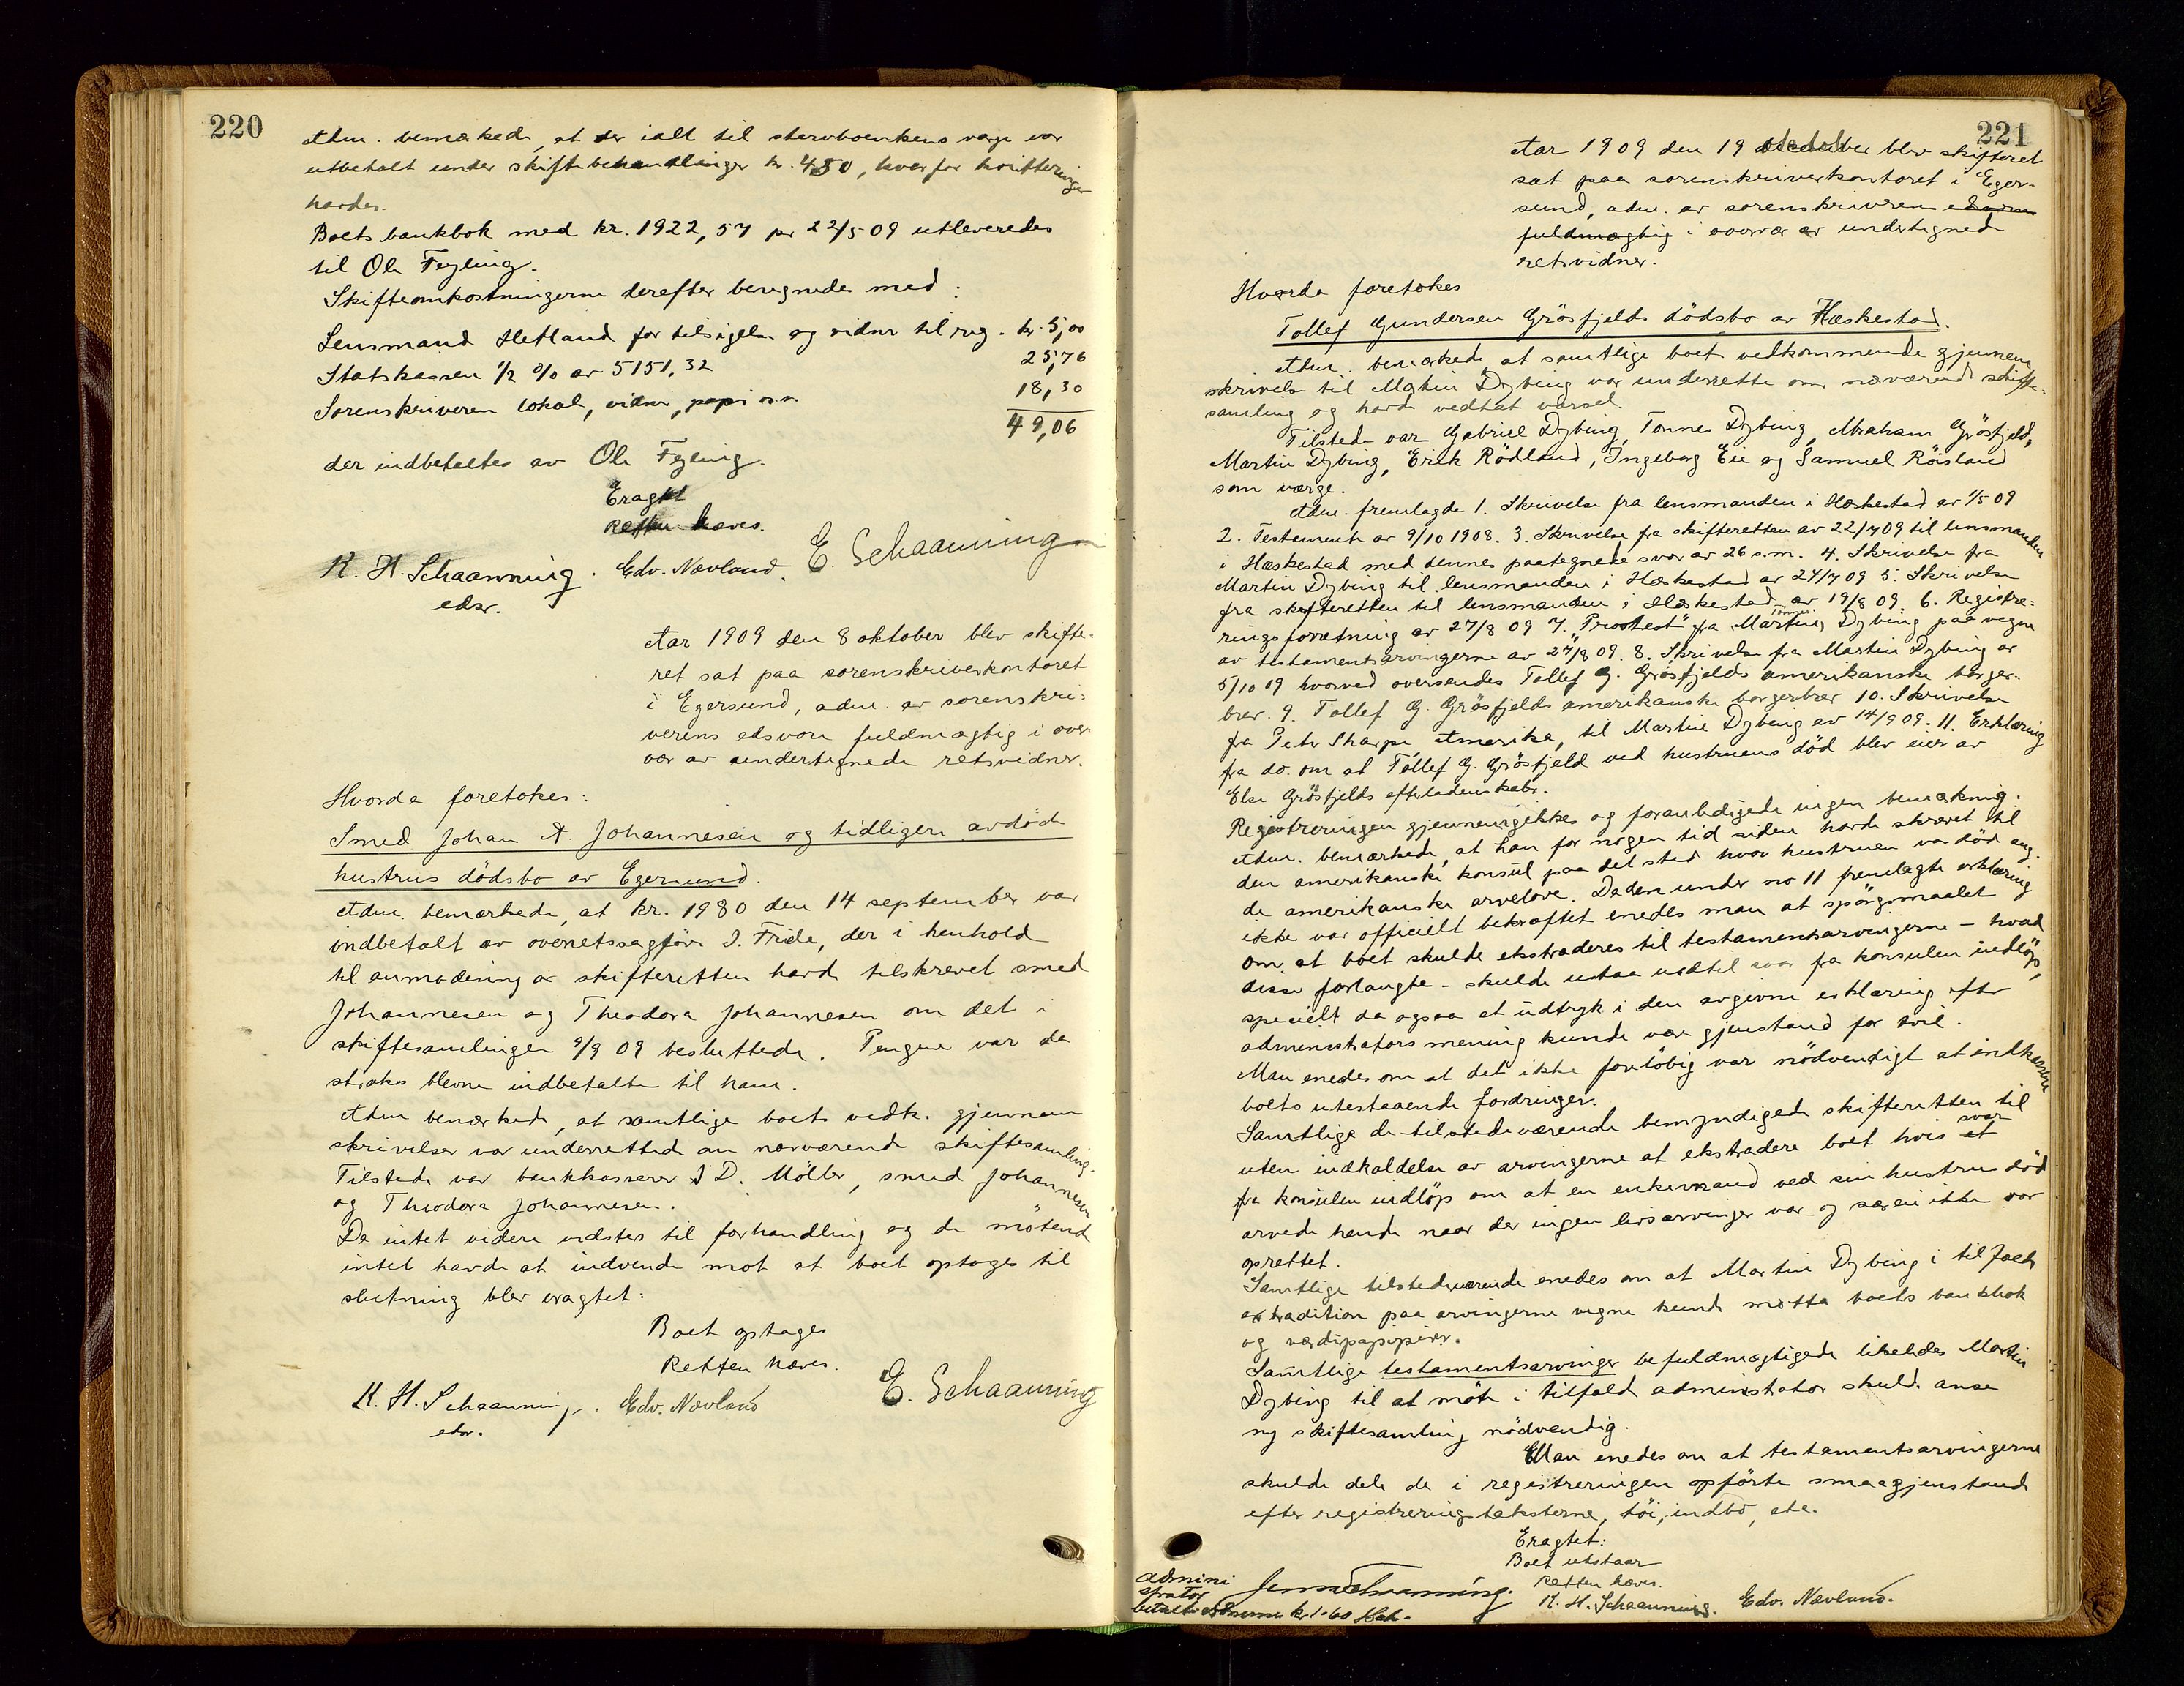 220
Adm. bemærkede, at der ialt til stervboenkens verge var
utbetalt under skiftebehandlingen kr. 450, hvorfor kvitteringer
havdes.
Boets bankbok med kr. 1922,57 pr 22/5 09 utleveredes
til Ole Fegling.
Skifteomkostningerne derefter beregnedes med:
Lensmand Hetland for tilsigelse og vidner til reg. kr. 5,00
Statskassen 1/2 % av 5151,32 25,76
Sorenskriveren lokal, vidner, papir o.s.v. 18,30
49,06
der indbetaltes av Ole Fegling.
Eragtet
Retten hæves.
K. H. Schaanning. Edv. Nævland. E. Schaanning
edsv.
Aar 1909 den 8 oktober blev skifte-
ret sat paa sorenskriverkontoret
i Egersund, adm. av sorenskri-
verens edsvorne fuldmægtig i over-
vær av undertegnede retsvidner.
Hvorda foretokes:
Smed Johan A. Johannesen og tidligere avdød
hustrus dödsbo av Egersund.
Adm. bemærkede, at kr. 1980 den 14 september var
indbetalt av overretssagfører J. Feide, der i henhold
til anmodning av skifteretten havde tilskrevet smed
Johannesen og Theodora Johannesen om det i
skiftesamlingen 9/9 09 besluttede. Pengene var da
straks blevne indbetalte til ham.
Adm bemærkede, at samtlige boets vedk. gjennem
skrivelser var underrettede om nærværende skiftesamling.
Tilstede var bankkasserer J D. Möller, smed Johannesen
og Theodora Johannesen.
Da intet videre vidstes til forhandling og de mötende
intet havde at indvende mot at boet optoges til
slutning blev eragtet:
Boet optages
Retten hæves.
K. H. Schaanning. Edv. Nævland E. Schaanning
edsv.
221
Aar 1909 den 19 oktober blev skifteret
sat paa sorenskriverkontoret i Eger-
sund, adm. av sorenskriveren edsvorne
fuldmægtig i overvær av undertegnede
retsvidner.
Hvorda foretokes
Tollef Gundersen Grösfjelds dödsbo av Heskestad.
Adm. bemærkede at samtlige boets vedkommende gjennem
skrivelse til Martin Dybing var underrettet om nærværende skifte-
samling og havde vedtat varsel.
Tilstede var Gabriel Dybing, Tonnes Dybing, Abraham Grösfjeld,
Martin Dybing, Erik Rödland, Ingeborg Eie og Samuel Röisland
som værge.
Adm. fremlagde 1. Skrivelse fra lensmanden i Heskestad av 1/5 09
2. Testamente av 9/10 1908. 3. Skrivelse fra skifteretten av 22/7 09 til lensmanden
i Heskestad med dennes paategnede svar av 26 s.m. 4. Skrivelse fra
Martin Dybing til lensmanden i Heskestad av 24/7 09 5. Skrivelse
fra skifteretten til lensmanden i Heskestad av 19/8 09. 6. Registre-
ringsforretning av 27/8 09 7. "Protest" fra Tonnes Martin Dybing paa vegne
av testamentsarvingerne av 27/8 09. 8. Skrivelse fra Martin Dybing av
5/10 09 hvorved oversendes Tollef G. Grösfjelds amerikanske borger-
brev. 9. Tollef G. Grösfjelds amerikanske borgerbrev 10. Skrivelse
fra Peter Sharpe, Amerika, til Martin Dybing av 14/9 09. 11. Erklæring
fra do. om at Tollef G. Grösfjeld ved hustruens död blev eier av
Else Grösfjelds efterladenskaber.
Registreringen gjennemgikkes og foranledigede ingen bemerkning.
Adm. bemærkede, at han for nogen tid siden havde skrevet til
den amerikanske konsul paa det sted hvor hustruen var död ang.
de amerikanske arvelove. Da den under no 11 fremlagte erklæring
ikke var officielt bekræftet enedes man at spörgsmaalet
om at boet skulde ekstraderes til testamentsarvingerne – hvad
disse forlangte – skulde utstaa indtil svar fra konsulen indlöp,
specielt da ogsaa et udtryk i den avgivne erklæring efter
administrators mening kunde være gjenstand for tvil.
Man enedes om at det ikke foreløbig var nödvendigt at indkassere
boets utestaaende fordringer.
Samtlige de tilstedeværende bemyndigede skifteretten til
uten indkaldelse av arvingerne at ekstradere boet hvis et svar
fra konsulen indlöp om at en enkemand ved sin hustrus död
arvede hende naar der ingen livsarvinger var og særeie ikke var
oprettet.
Samtlige tilstedeværende enedes om at Martin Dybing i tilfælde
extradition paa arvingernes vegne kunde motta boets bankbok
og værdipapipirer.
Samtlige testamentsarvinger befuldmægtigede likeledes Martin
Dybing til at möte i tilfælde administrator skulde anse
ny skiftesamling nödvendig.
Man enedes om at testamentsarvingerne
skulde dele de i registreringen opförte smaagjenstande
efter registreringstaksterne, töi, indbo, etc.
Eragtet:
Boet utstaar
Retten hæves.
K. H. Schaanning. Edv. Nævland.
Admini
strator
betalte kr 1.60